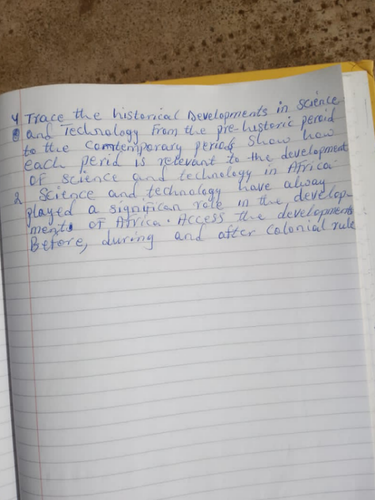 1. Trace the historical Developments in science
and Technology from the pre-historic period
to the contemporary period. Show how
each period is relevant to the development
of science and technology in Africa.
2. Science and technology have alway
played a significan role in the develop-
ments of Africa. Access the developments
Before, during and after colonial rule